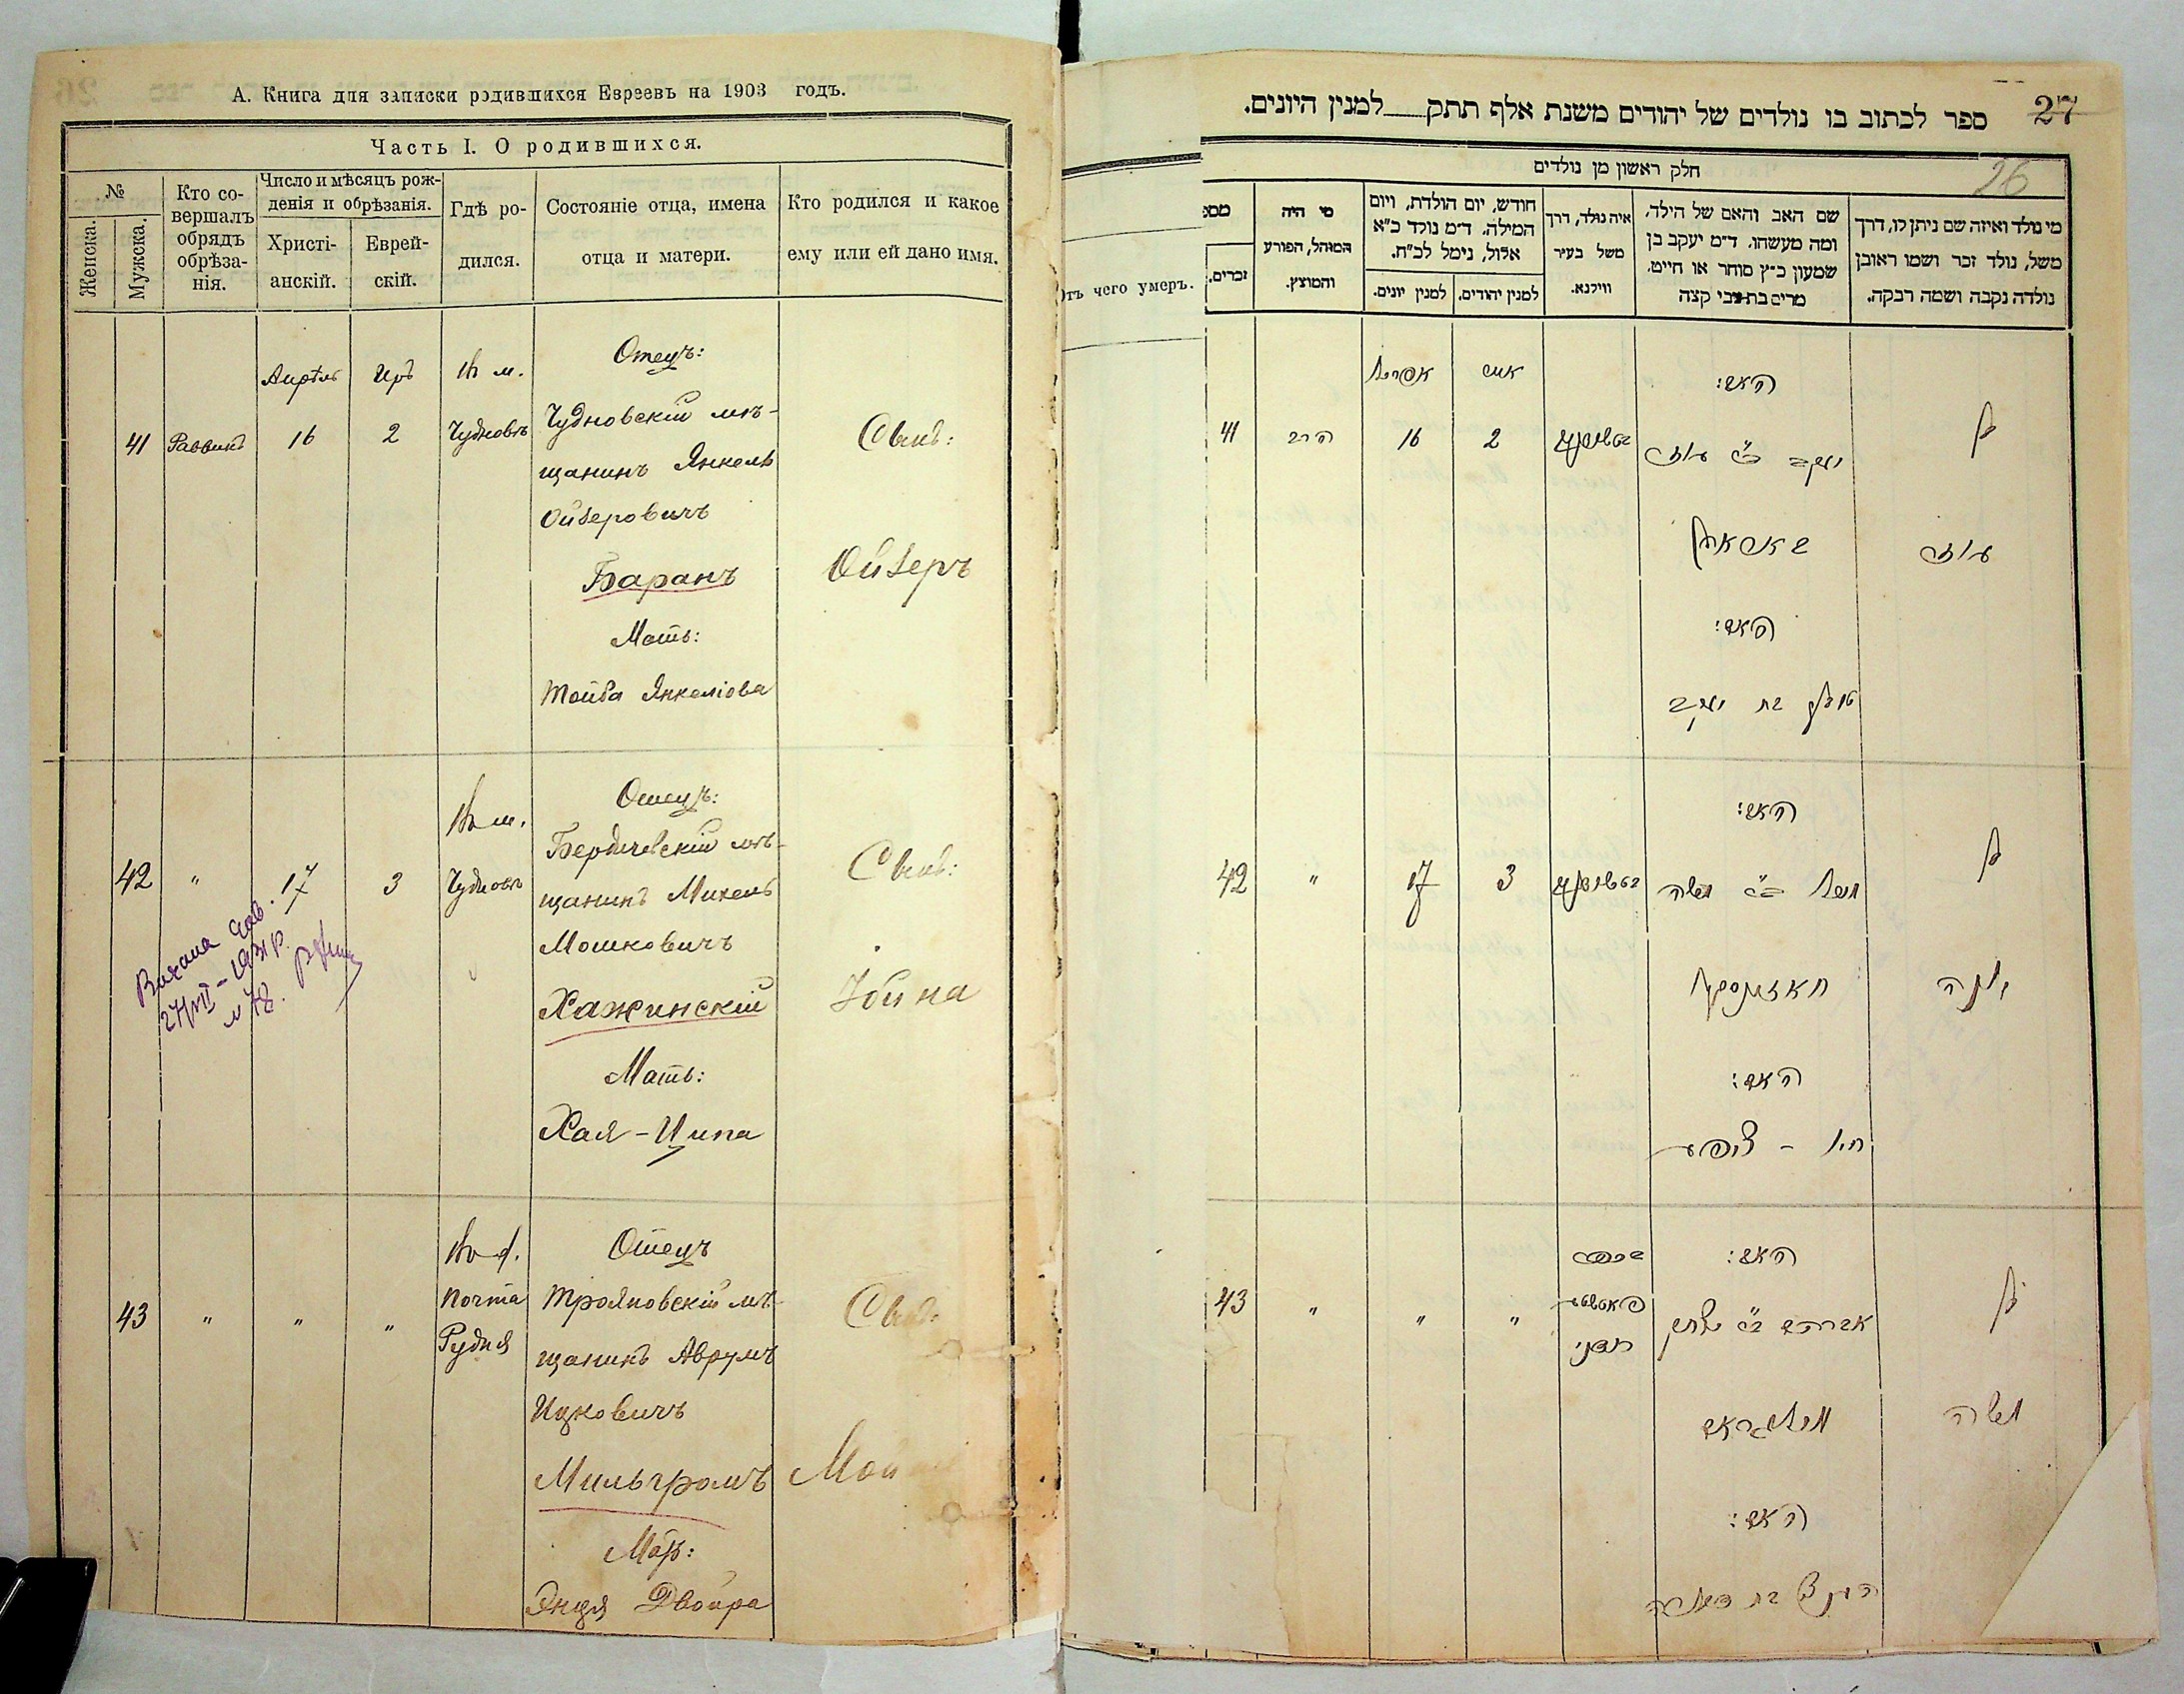 А. Книга для записки родившихся Евреевъ на 1903 годъ.
Часть I. О родившихся.
№
Женска.
Мужска.
Кто совершалъ обрядъ обрѣзанія.
Число и мѣсяцъ рожденія и обрѣзанія.
Христіанскій.
Еврейскій.
Гдѣ родился.
Состояніе отца, имена отца и матери.
Кто родился и какое ему или ей дано имя.
Апрѣль Иръ въ м. Отецъ:
41 Раввинъ 16 2 Чудновѣ Чудновскій мѣ-
щанинъ Янкель
Ойзеровичъ
Баранъ
Мать:
Тойба Янкеліова
Сынъ:
Ойзеръ
въ м. Отецъ:
42 " 17 3 Чудновѣ Бердичевскій мѣ-
щанинъ Михель
Мошковичъ
Хажинскій
Мать:
Хая-Ципа
Сынъ:
Іойна
43 " " "
Почта
Рудня
Отецъ
Трояновскій мѣ-
щанинъ Аврумъ
Ицковичъ
Мильгромъ
Мать:
Двойра
Сынъ:
27
26
ספר לכתוב בו נולדים של יהודים משנת אלף תתק למנין היונים.
חלק ראשון מן נולדים
מי נולד ואיזה שם ניתן לו, דרך
משל, נולד זכר ושמו ראובן
נולדה נקבה ושמה רבקה.
שם האב והאם של הילד,
ומה מעשהו. ד״מ יעקב בן
שמעון כ״ץ סוחר או חייט,
מרים בת צבי קצה
איה נולד, דרך
משל בעיר
ווילנא.
חודש, יום הולדת, ויום
המילה. ד״מ נולד כ״א
אלול, נימל לכ״ח.
למנין יהודים.
למנין יונים.
מי היה
המוהל, הפורע
והמוצץ.
מספ
זכרים.
отъ чего умеръ.
אפריל
האב:
41 הרב 16 2
יעקב ב״ר עוזר
באראן
עוזר
האם:
טויבע בת יעקב
האב:
42 " 17 3
מיכל ב״ר משה
יונה
האם:
חיה - ציפע
האב:
43 " " "
אברהם ב״ר יצחק
מילגראם
משה
האם: